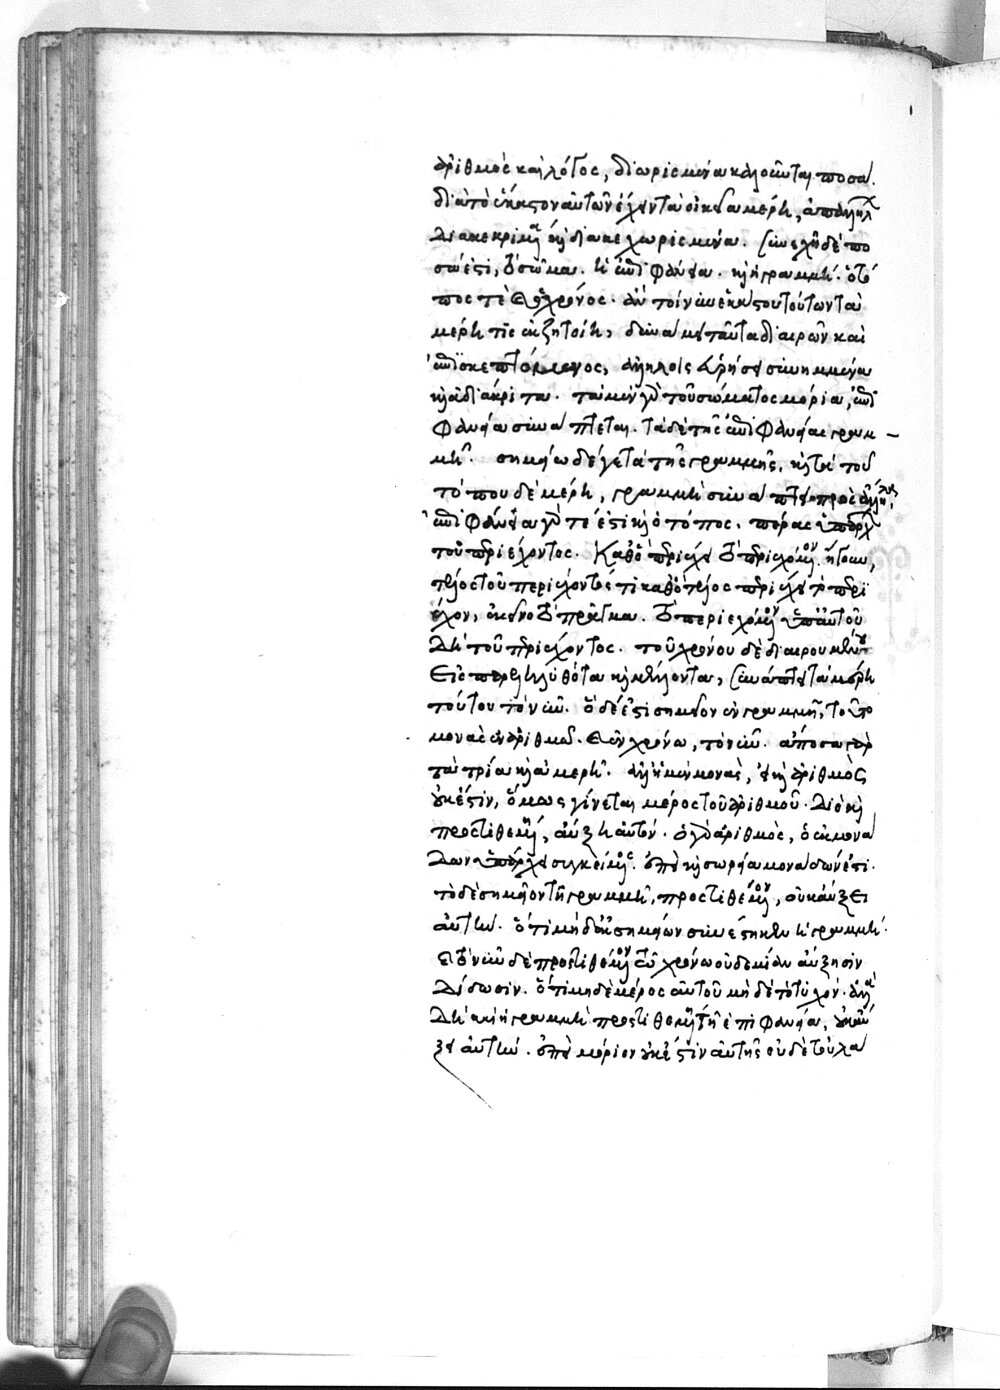 ἀριθμὸς καὶ λόγος, διωρισμένα καλοῦνται ποσά.
διὰ τὸ ἕκαστον αὐτῶν ἔχειν τὰ οἰκεῖα μέρη, ἀπ' ἀλλήλων
διακεκριμένα καὶ διακεχωρισμένα. συνεχῆ δὲ πο
σά ἐστι, τὸ σῶμα. ἡ ἐπιφάνεια. καὶ ἡ γραμμή. ὅ τε τό
πος τε καὶ ὁ χρόνος. ἂν τοίνυν ἑκάστου τούτων τὰ
μέρη τις ἐκζητοίη, δυνάμει ταῦτα διαιρῶν καὶ
ἐπισκεπτόμενος, ἀλλήλοις εὑρήσει συνημμένα
καὶ ἀδιάκριτα. τὰ μὲν γὰρ τοῦ σώματος μόρια, ἐπι
φανείᾳ συνάπτεται. τὰ δὲ τῆς ἐπιφανείας γραμ
μῇ. σημείῳ δέ γε τὰ τῆς γραμμῆς. καὶ τὰ τοῦ
τόπου δὲ μέρη, γραμμὴ συνάπτει πρὸς ἄλληλα.
ἐπιφάνεια γάρ τέ ἐστι καὶ ὁ τόπος. πέρας ὑπάρχων
τοῦ περιέχοντος. καθὸ περιέχει τὸ περιεχόμενον. ἤγουν,
τέλος τοῦ περιέχοντός τι καθὸ τέλος περιέχει τὸ περι
έχον, ἐκεῖνο τὸ πρᾶγμα. τὸ περιεχόμενον ὑπ' αὐτοῦ
δὴ τοῦ περιέχοντος. τοῦ χρόνου δὲ διαιρουμένου
εἰς παρεληλυθότα καὶ μέλλοντα, συνάπτει τὰ μέρη
τούτου τὸ νῦν. ὃ δέ ἐστι σημεῖον ἐν γραμμῇ, τοῦτο
μονὰς ἐν ἀριθμῷ. καὶ ἐν χρόνῳ, τὸ νῦν.
τὰ τρία καὶ ἀμερῆ. ἀλλ' ἡ μὲν μονὰς, εἰ καὶ ἀριθμὸς
οὐκ ἔστιν, ὅμως γίνεται μέρος τοῦ ἀριθμοῦ. διὸ καὶ
προστιθεμένη, αὔξει αὐτόν. ὁ γὰρ ἀριθμὸς, ὁ ἐκ μονά
δων ὑπάρχει συγκείμενος. ἐπεὶ καὶ σωρεία μονάδων ἐστί.
τὸ δὲ σημεῖον τῇ γραμμῇ, προστιθέμενον, οὐκ αὔξει
αὐτήν. ὅτι μὴ δ' ἐκ σημείων συνέστηκεν ἡ γραμμή.
καὶ τὸ νῦν δὲ προστιθέμενον τῷ χρόνῳ οὐδεμίαν αὔξησιν
δίδωσιν. ὅτι μηδὲ μέρος αὐτοῦ μηδὲ τὸ τυχόν. ἀλλὰ
δὴ καὶ ἡ γραμμὴ προστιθεμένη τῇ ἐπιφανείᾳ, οὐκ αὔ
ξει αὐτήν. ἐπεὶ μόριον οὐκ ἔστιν αὐτῆς οὐδὲ τοὐλά